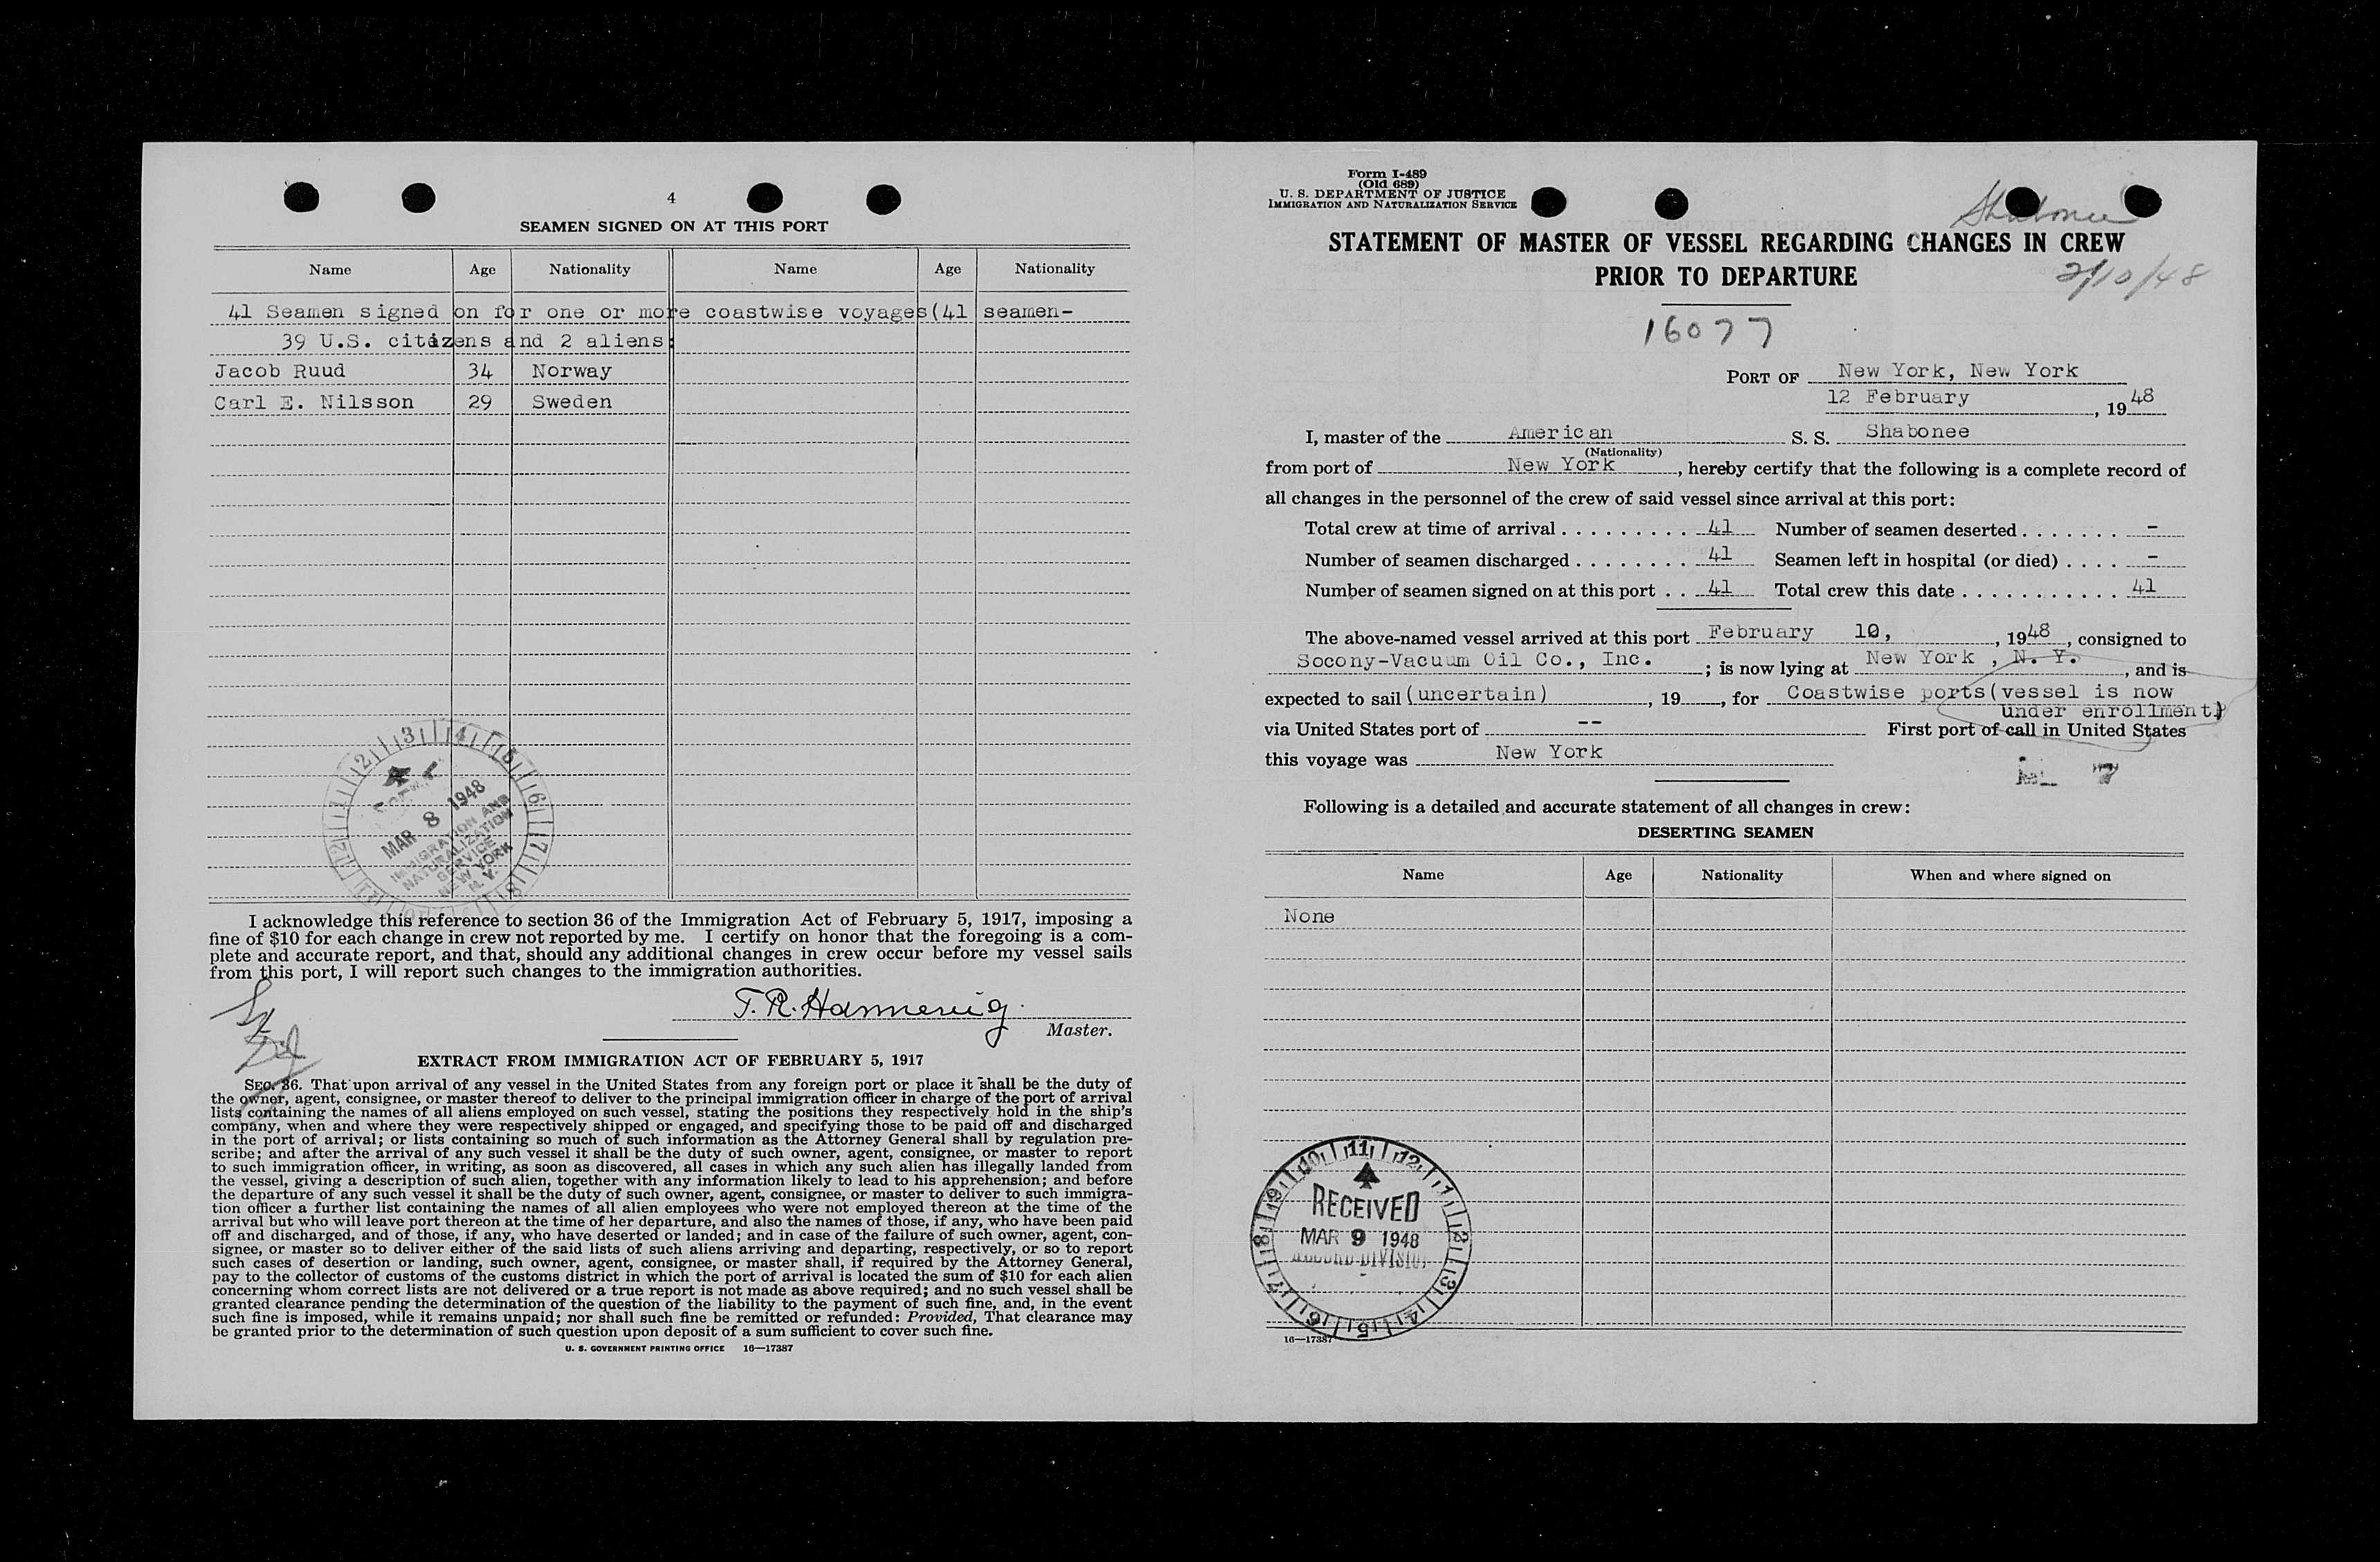 4
SEAMEN SIGNED ON AT THIS PORT
Name Age Nationality Name Age Nationality
41 Seamen signed on for one or more coastwise voyages(41 seamen-
39 U.S. citizens and 2 aliens:
Jacob Ruud 34 Norway
Carl E. Nilsson 29 Sweden
MAR 8 1948
IMMIGRATION AND
NATURALIZATION
SERVICE
NEW YORK
N. Y.
I acknowledge this reference to section 36 of the Immigration Act of February 5, 1917, imposing a
fine of $10 for each change in crew not reported by me. I certify on honor that the foregoing is a com-
plete and accurate report, and that, should any additional changes in crew occur before my vessel sails
from this port, I will report such changes to the immigration authorities.
T. R. Hannevig
Master.
EXTRACT FROM IMMIGRATION ACT OF FEBRUARY 5, 1917
SEC. 36. That upon arrival of any vessel in the United States from any foreign port or place it shall be the duty of
the owner, agent, consignee, or master thereof to deliver to the principal immigration officer in charge of the port of arrival
lists containing the names of all aliens employed on such vessel, stating the positions they respectively hold in the ship's
company, when and where they were respectively shipped or engaged, and specifying those to be paid off and discharged
in the port of arrival; or lists containing so much of such information as the Attorney General shall by regulation pre-
scribe; and after the arrival of any such vessel it shall be the duty of such owner, agent, consignee, or master to report
to such immigration officer, in writing, as soon as discovered, all cases in which any such alien has illegally landed from
the vessel, giving a description of such alien, together with any information likely to lead to his apprehension; and before
the departure of any such vessel it shall be the duty of such owner, agent, consignee, or master to deliver to such immigra-
tion officer a further list containing the names of all alien employees who were not employed thereon at the time of the
arrival but who will leave port thereon at the time of her departure, and also the names of those, if any, who have been paid
off and discharged, and of those, if any, who have deserted or landed; and in case of the failure of such owner, agent, con-
signee, or master so to deliver either of the said lists of such aliens arriving and departing, respectively, or so to report
such cases of desertion or landing, such owner, agent, consignee, or master shall, if required by the Attorney General,
pay to the collector of customs of the customs district in which the port of arrival is located the sum of $10 for each alien
concerning whom correct lists are not delivered or a true report is not made as above required; and no such vessel shall be
granted clearance pending the determination of the question of the liability to the payment of such fine, and, in the event
such fine is imposed, while it remains unpaid; nor shall such fine be remitted or refunded: Provided, That clearance may
be granted prior to the determination of such question upon deposit of a sum sufficient to cover such fine.
U. S. GOVERNMENT PRINTING OFFICE 16—17387
Form I-489
(Old 689)
U. S. DEPARTMENT OF JUSTICE
IMMIGRATION AND NATURALIZATION SERVICE
Shabonee
STATEMENT OF MASTER OF VESSEL REGARDING CHANGES IN CREW
PRIOR TO DEPARTURE
2/10/48
16077
PORT OF New York, New York
12 February, 1948
I, master of the American S. S. Shabonee
(Nationality)
from port of New York, hereby certify that the following is a complete record of
all changes in the personnel of the crew of said vessel since arrival at this port:
Total crew at time of arrival . . . . . . . . . . 41 Number of seamen deserted . . . . . . . -
Number of seamen discharged . . . . . . . . 41 Seamen left in hospital (or died) . . . . -
Number of seamen signed on at this port . . 41 Total crew this date . . . . . . . . . . . . 41
The above-named vessel arrived at this port February 10, , 1948, consigned to
Socony-Vacuum Oil Co., Inc. ; is now lying at New York , N. Y. , and is
expected to sail (uncertain) , 19 , for Coastwise ports(vessel is now
under enrollment)
via United States port of -- First port of call in United States
this voyage was New York
Following is a detailed and accurate statement of all changes in crew:
DESERTING SEAMEN
Name Age Nationality When and where signed on
None
RECEIVED
MAR 9 1948
RECORD DIVISION
16—17387